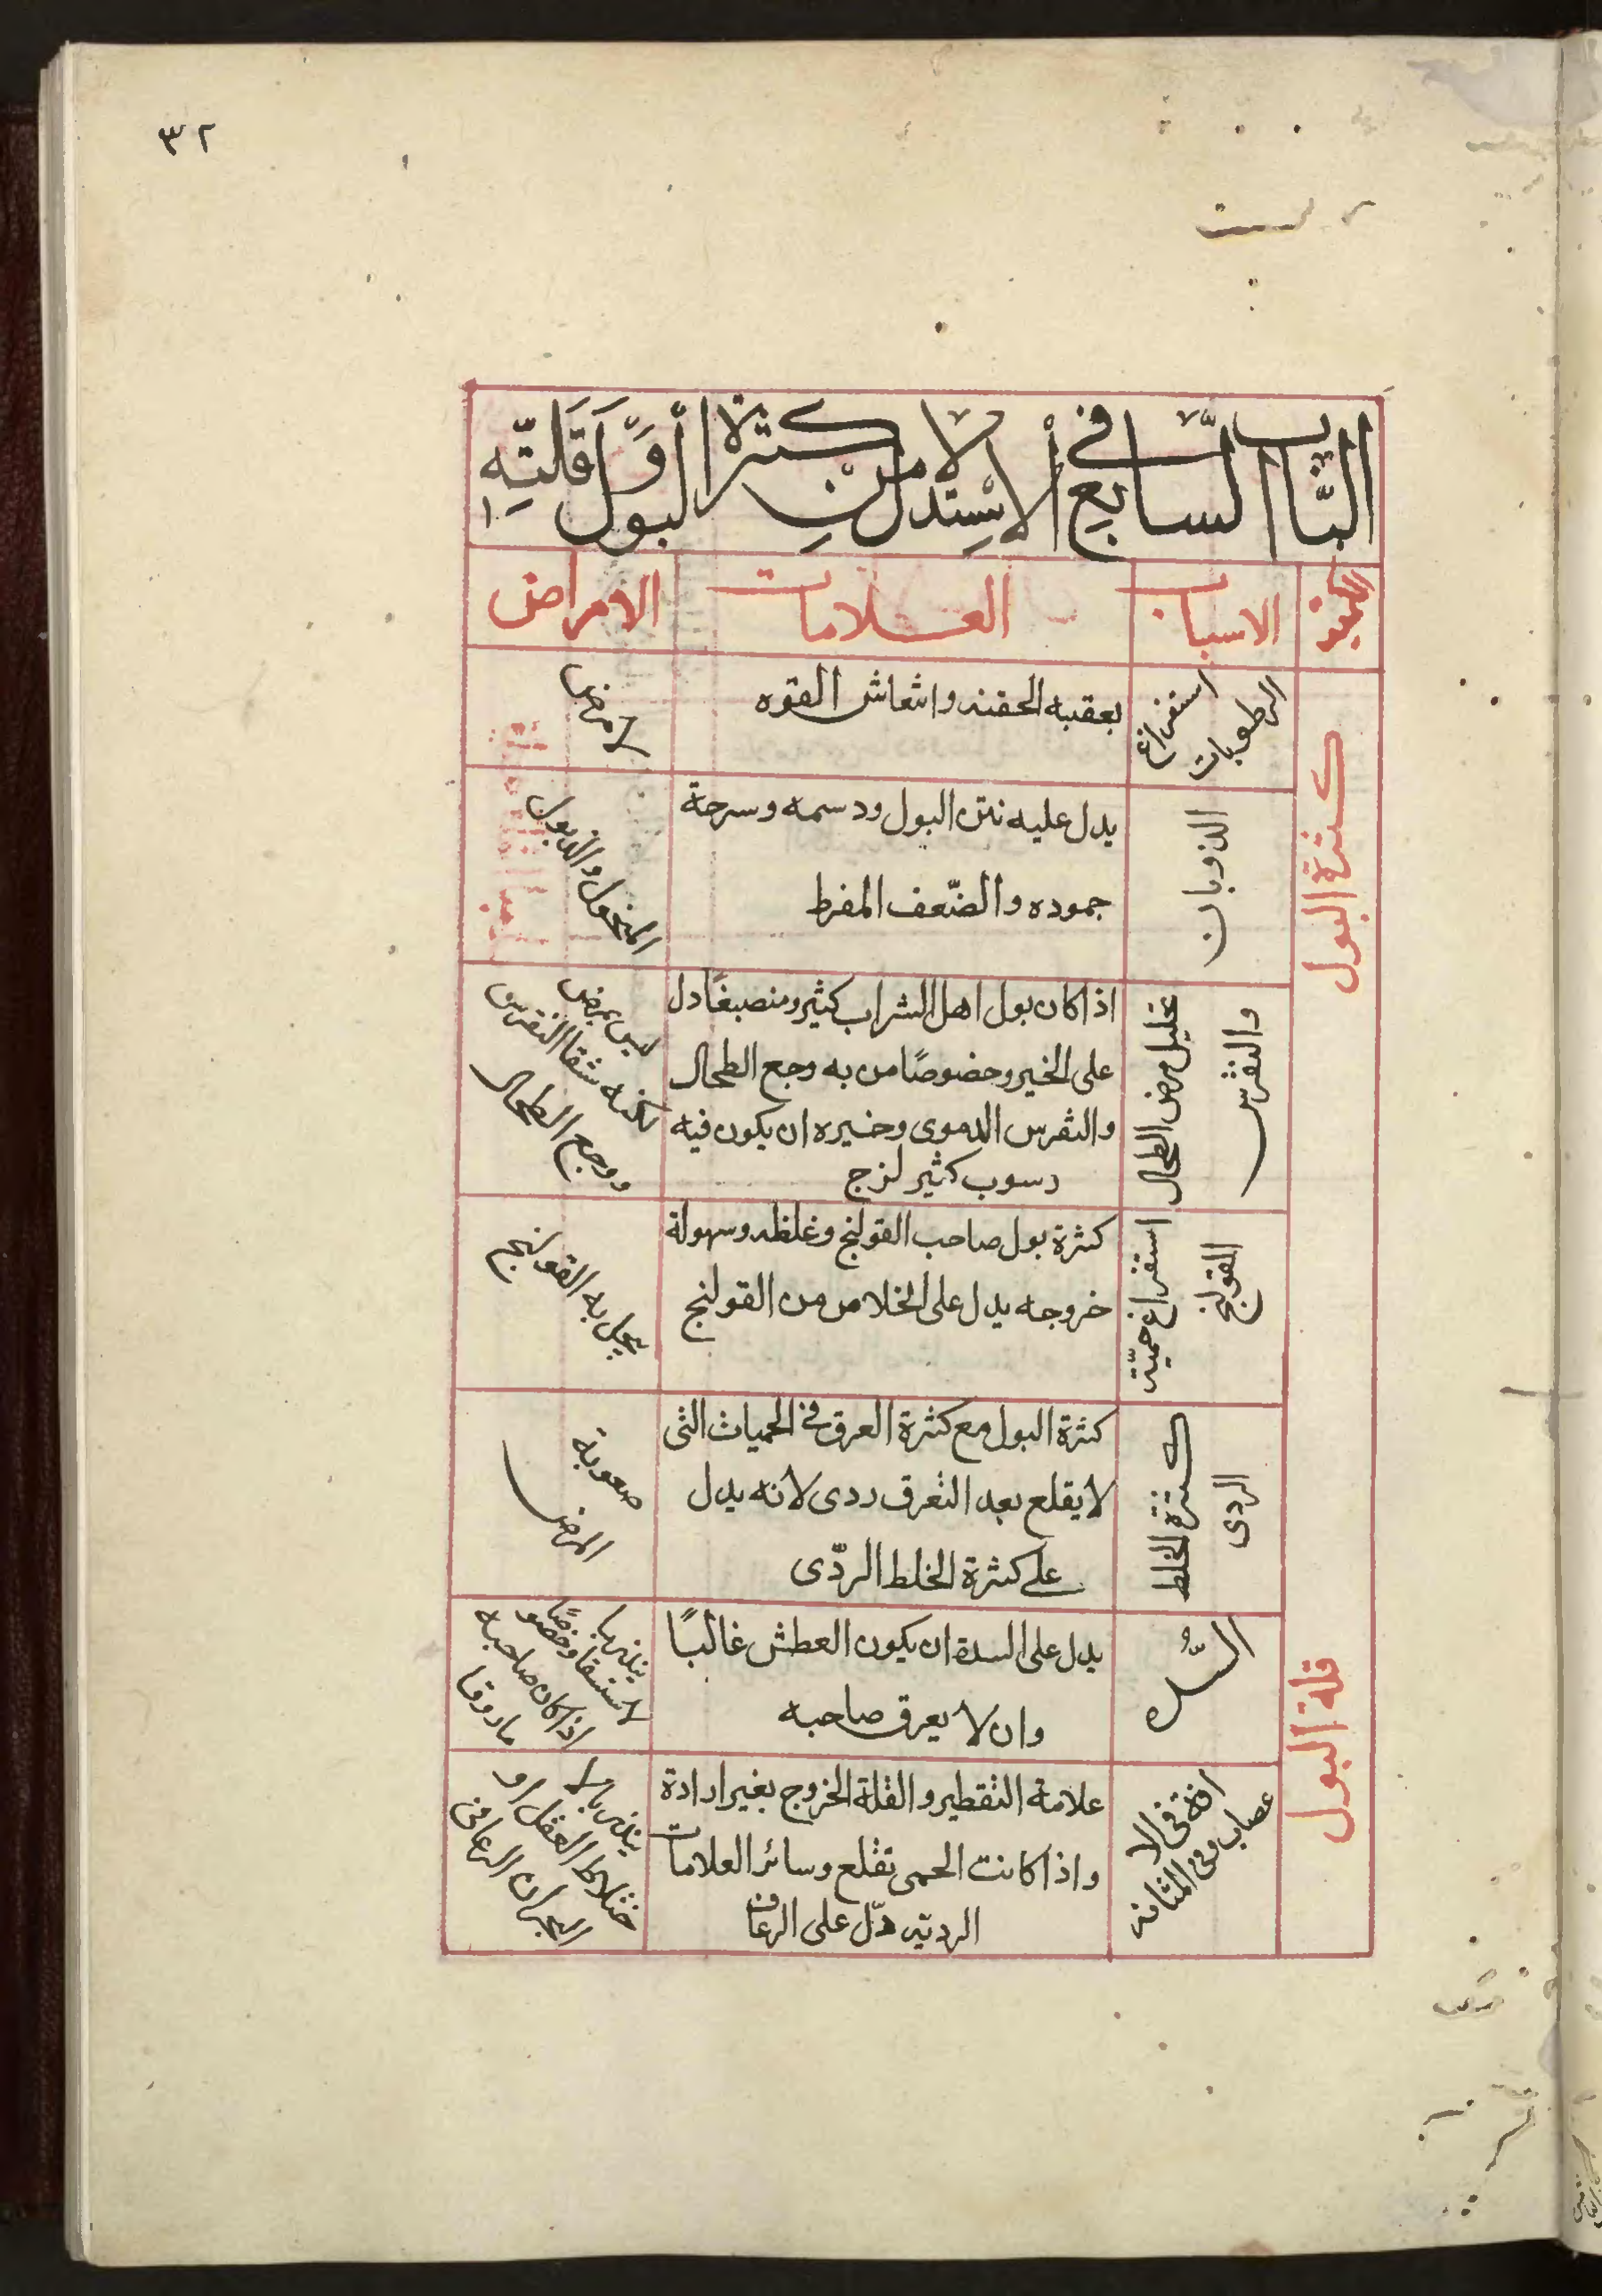 ٣٢
الباب السابع في الاستدلال من كثرة البول أو قلته
الاسباب
العلامات
الامراض
كثرة البول
استفراغ
الرطوبات
بعقبه الخفة وانتعاش القوه
لا مرض
الذوبان
يدل عليه نتن البول ودسمه وسرحة
جموده والضّعف المفرط
والذبول
تحليل مرض الطحال
والنقرس
اذا كان بول اهل الشراب كثير ومنصبغًا دل
على الخير وخصوصًا من به وجع الطحال
والنقرس الدموى وخيره ان يكون فيه
رسوب كثير لزج
ليس بمرض
لكنه شفا النقرس
ووجع الطحال
استفراغ
القولنج
كثرة بول صاحب القولنج وغلظه وسهولة
خروجه يدل على الخلاص من القولنج
يحل به القولنج
كثرة الخلط
الردى
كثرة البول مع كثرة العرق فى الحميات التى
لا يقلع بعد التعرق ردى لانه يدل
على كثرة الخلط الردّى
صعوبة
المرض
قلة البول
السّده
يدل على السدة ان يكون العطش غالبًا
وان لا يعرق صاحبه
ينذر با
لاستسقا وخصوصًا
اذا كان صاحبه
افة فى الا
عصاب وفى المثانه
علامة التقطير والقلة الخروج بغير ارادة
واذا كانت الحمى تقلع وسائر العلامات
الرديه دّل على الرعاف
ينذر بالا
ختلاط العقل او
البحران الرعافى